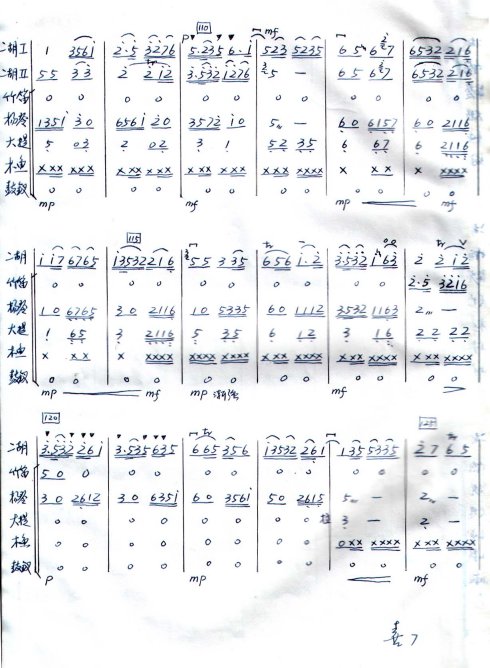 110
mf
二胡I 1 3561 2·5 3276 5.235 6·1 523 5235 65 667 6532 216
二胡II 55 33 2 212 3.532 1276 5 — 65 667 6532 216
竹笛 0 0 0 0 0 0 0 0 0 0 0 0
扬琴 1351 30 6561 20 3572 10 5 — 60 6157 60 2116
大提 5 03 2 02 3 1 52 35 6 67 6 2116
木鱼 xxx xxxx xxx xxxx xxx xxxx xxx xxxx x xx x xxxx
鼓钹 0 0 0 0 0 0 0 0 0 0 0 0
mp mf mp mf
115
二胡 117 6765 13532 216 55 335 656 1·2 3.532 163 2 212
竹笛 0 0 0 0 0 0 0 0 0 0 2·5 3216
扬琴 10 6765 30 2116 10 5335 60 1112 3532 1163 2 —
大提 1 65 3 2116 5 35 6 12 3 16 22 22
木鱼 x xx x xxxx xxxx xxxx xxx xxxx xx xxxx xx xxxx
鼓钹 0 0 0 0 0 0 0 0 0 0 0 0
mp mf mp 渐强 mf
120 125
二胡 3.532 261 3.535 635 665 356 13532 261 135 5335 27 65
竹笛 50 0 0 0 0 0 0 0 0 0 0 0
扬琴 30 2612 30 6351 60 3561 50 2615 5 — 2 —
大提 0 0 0 0 0 0 0 0 拉 3 — 2 —
木鱼 0 0 0 0 0 0 0 0 0xx xxxx xxx xxxx
鼓钹 0 0 0 0 0 0 0 0 0 0 0 0
p mp mf
7